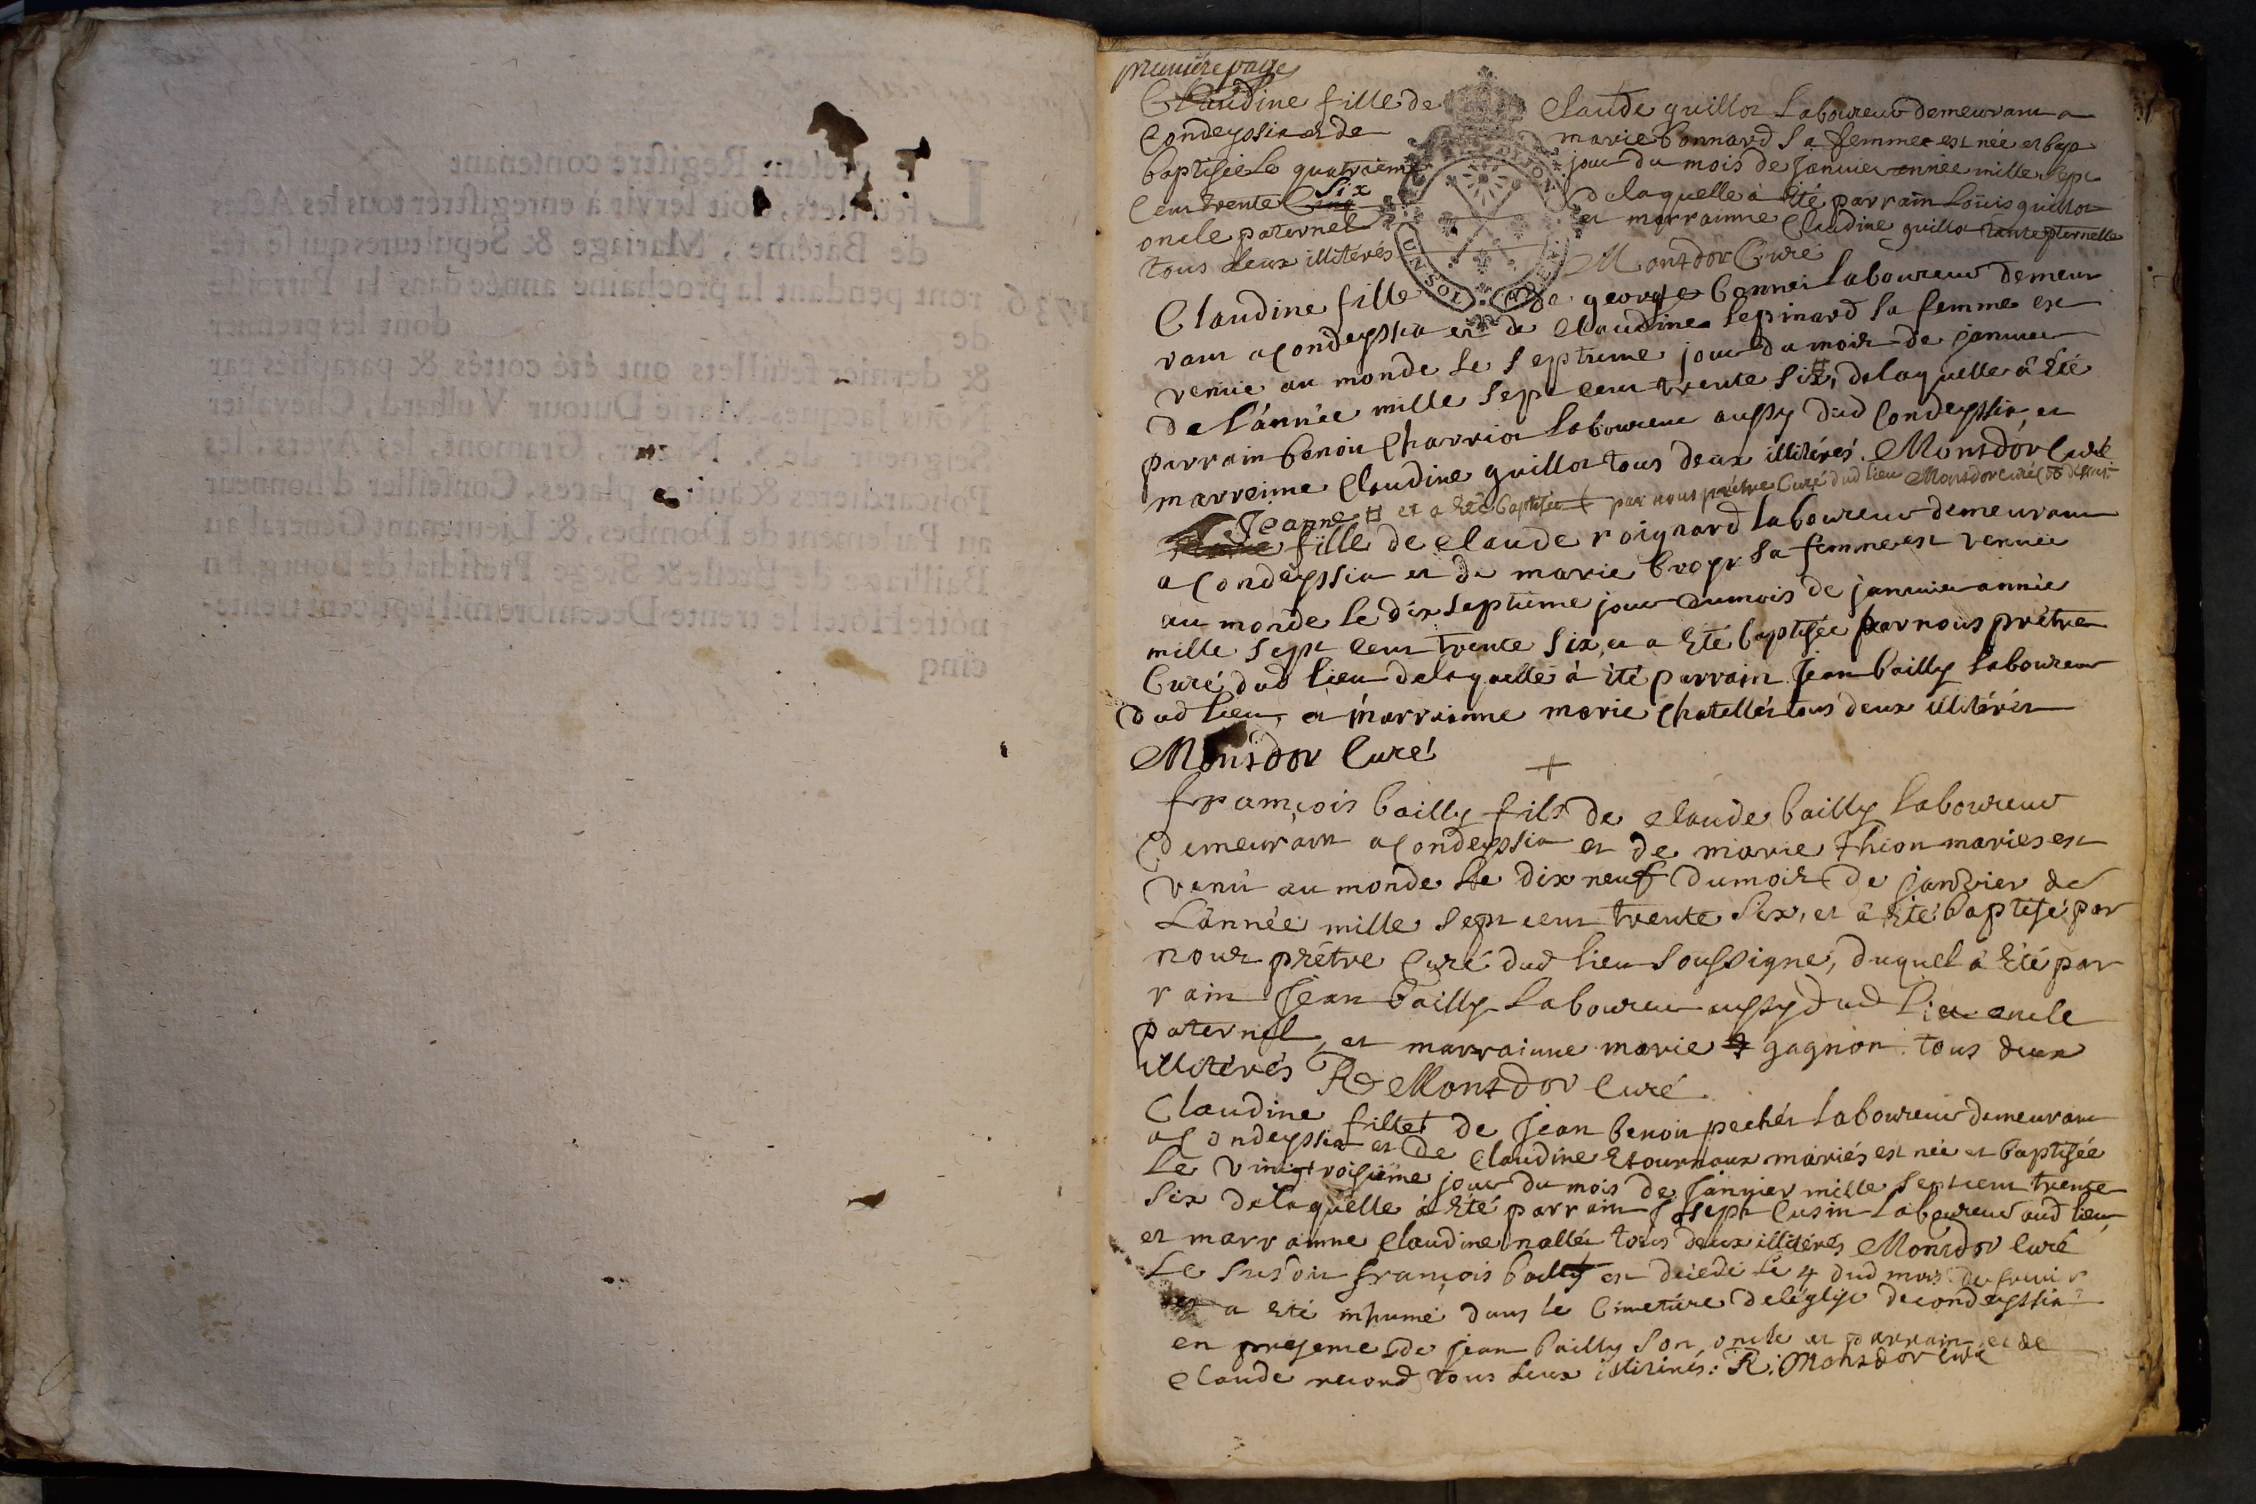 premiere page
Claudine fille de Claude guillot Laboureur demeurant a
Condeyssia et de marie bonnard sa femme est née et bap
baptisée Le quatrieme jour du mois de Janvier année mille sept
cent trente Cinq Six de laquelle à Eté parrain Loüis guillot
oncle paternel et marrainne Claudine guillot tante pternelle
tous deux illiterés Montdor Curé
UN SOL
Claudine fille de george bonnet laboureur demeur
rant a Condeyssia et de Claudine lepinard sa femme est
venüe au monde le septieme jour du mois de janvier
de L'année mille sept cent trente six, de laquelle à Eté
parrain benoit Charriot laboureur aussy dud Condeyssia et
marreinne Claudine guillot tous deux illitérés. Montdor Curé
# et a Eté baptisée par nous prêtre Curé dud lieu Montdor Curé
Jeanne
fille de Claude roignard laboureur demeurant
a Condeyssia et de marie broyr sa femme est venuë
au monde le dix septieme jour du mois de janvier année
mille sept cent trente six, et a Eté baptisée par nous prêtre
Curé dud lieu de laquelle à été parrain Jean bailly laboureur
dud lieu, et marrainne marie Chatellet tous deux illitérés
Montdor Curé
françois bailly fils de Claude bailly laboureur
demeurant a Condeyssia et de marie Thion mariés est
venu au monde le dix neuf du mois de janvier de
L'année mille sept cent trente six, et à Eté baptisé par
nous prêtre Curé dud lieu soussigne, duquel à Eté par
rain Jean bailly laboureur aussy dud lieu oncle
paternel, et marrainne marie gagnon tous deux
illitérés R Montdor Curé
Claudine fille de Jean benoit pechet laboureur demeurant
a Condeyssia et de Claudine Etournaux mariés est née et baptisée
le vingtroisieme jour du mois de Janvier mille sept cent trente
six de laquelle à Eté parrain Joseph Cusin laboureur aud lieu
et marrainne Claudine nallet tous deux illitérés Montdor Curé
Le susdit françois bailly est décédé le 4 dud mois de
et a Eté inhumé dans le Cimetiére de léglise de condeyssia
en presence de jean bailly son oncle et parrain et de
Claude recond tous deux illitérés: R. Montdor Curé
Le present Registre contenant
feüillets, doit servir à enregistrer tous les Actes
de Bâtême, Mariage & Sepultures qui se fe-
ront pendant la prochaine année 1736. dans la Parroisse
de dont les premier
& dernier feüillets ont été cottés & paraphés par
Nous Jacques-Marie Dutour Vulliard, Chevalier
Seigneur de S. Nizier, Gramont, les Ayets, les
Policardieres & autres places, Conseiller d'honneur
au Parlement de Dombes, & Lieutenant General au
Bailliage de Bresse & Siege Presidial de Bourg. En
nôtre Hôtel le trente Decembre mil sept cent trente-
cinq